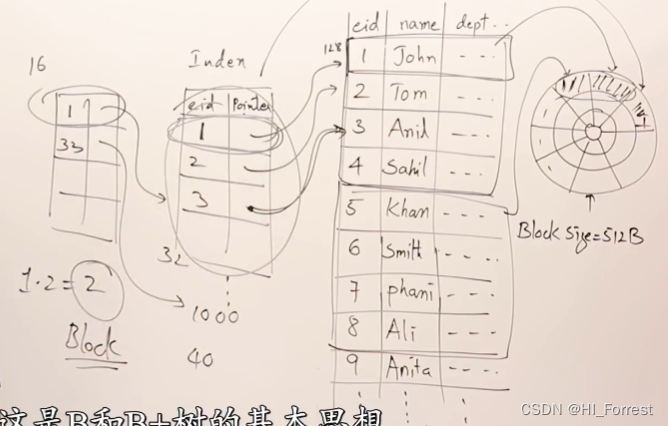 16
1
33
1·2 = 2
Block
Index
eid Pointer
1
2
3
32
1000
40
128
eid name dept..
1 John - - -
2 Tom - - -
3 Anil - - -
4 Sahil - - -
5 Khan - - -
6 Smith - - -
7 phani - - -
8 Ali - - -
9 Anita - - -
Block Size=512B
这是B和B+树的基本思想
CSDN @HI_Forrest